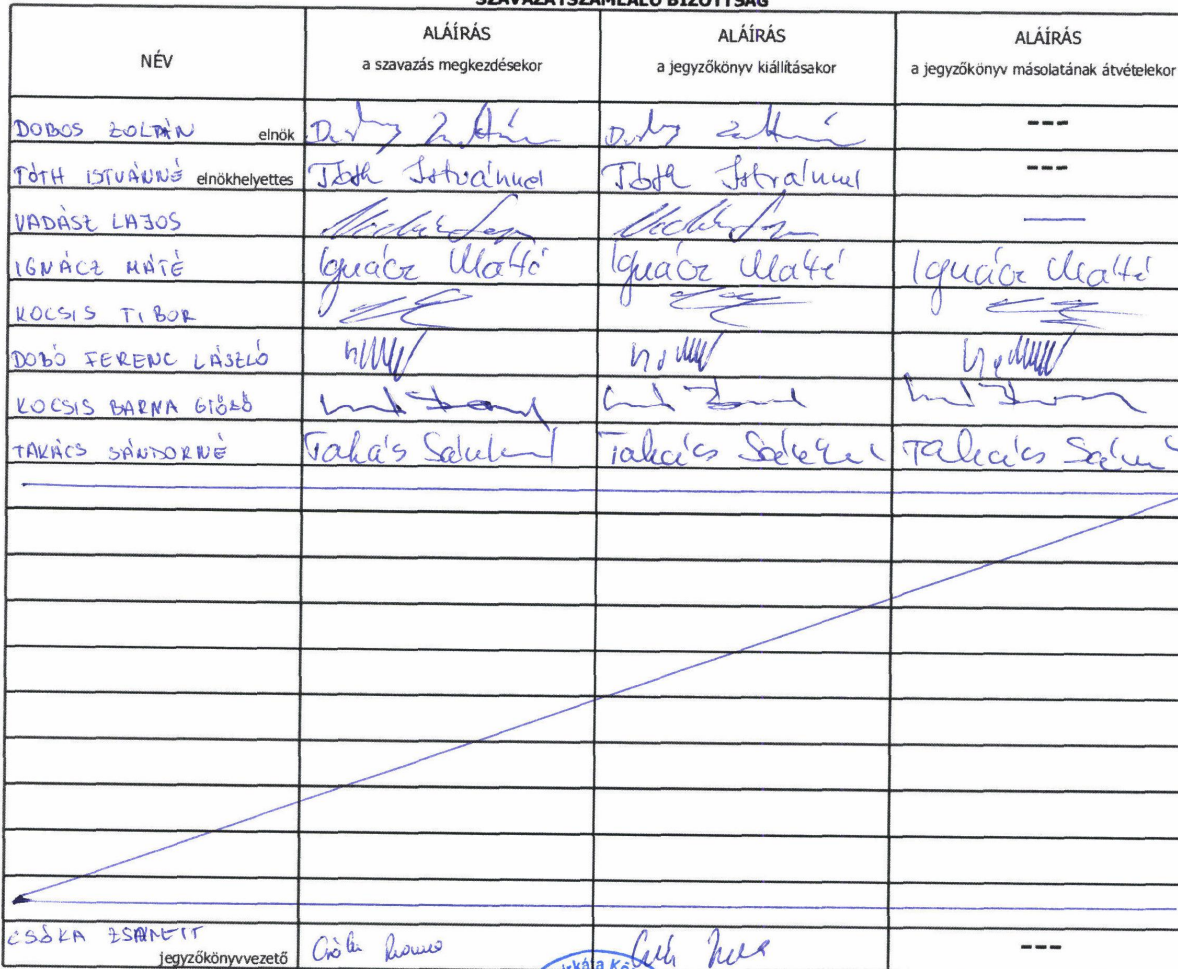 SZAVAZATSZÁMLÁLÓ BIZOTTSÁG
NÉV
ALÁÍRÁS
a szavazás megkezdésekor
ALÁÍRÁS
a jegyzőkönyv kiállításakor
ALÁÍRÁS
a jegyzőkönyv másolatának átvételekor
DOBOS ZOLTÁN elnök ---
TÓTH ISTVÁNNÉ elnökhelyettes Tóth Istvánné Tóth Istvánné ---
VADÁSZ LAJOS —
IGNÁCZ MÁTÉ Ignácz Máté Ignácz Máté Ignácz Máté
KOCSIS TIBOR
DOBÓ FERENC LÁSZLÓ
KOCSIS BARNA GIÖZŐ
TAKÁCS SÁNDORNÉ Takács Takács Takács
CSÓKA ZSANETT jegyzőkönyvvezető ---